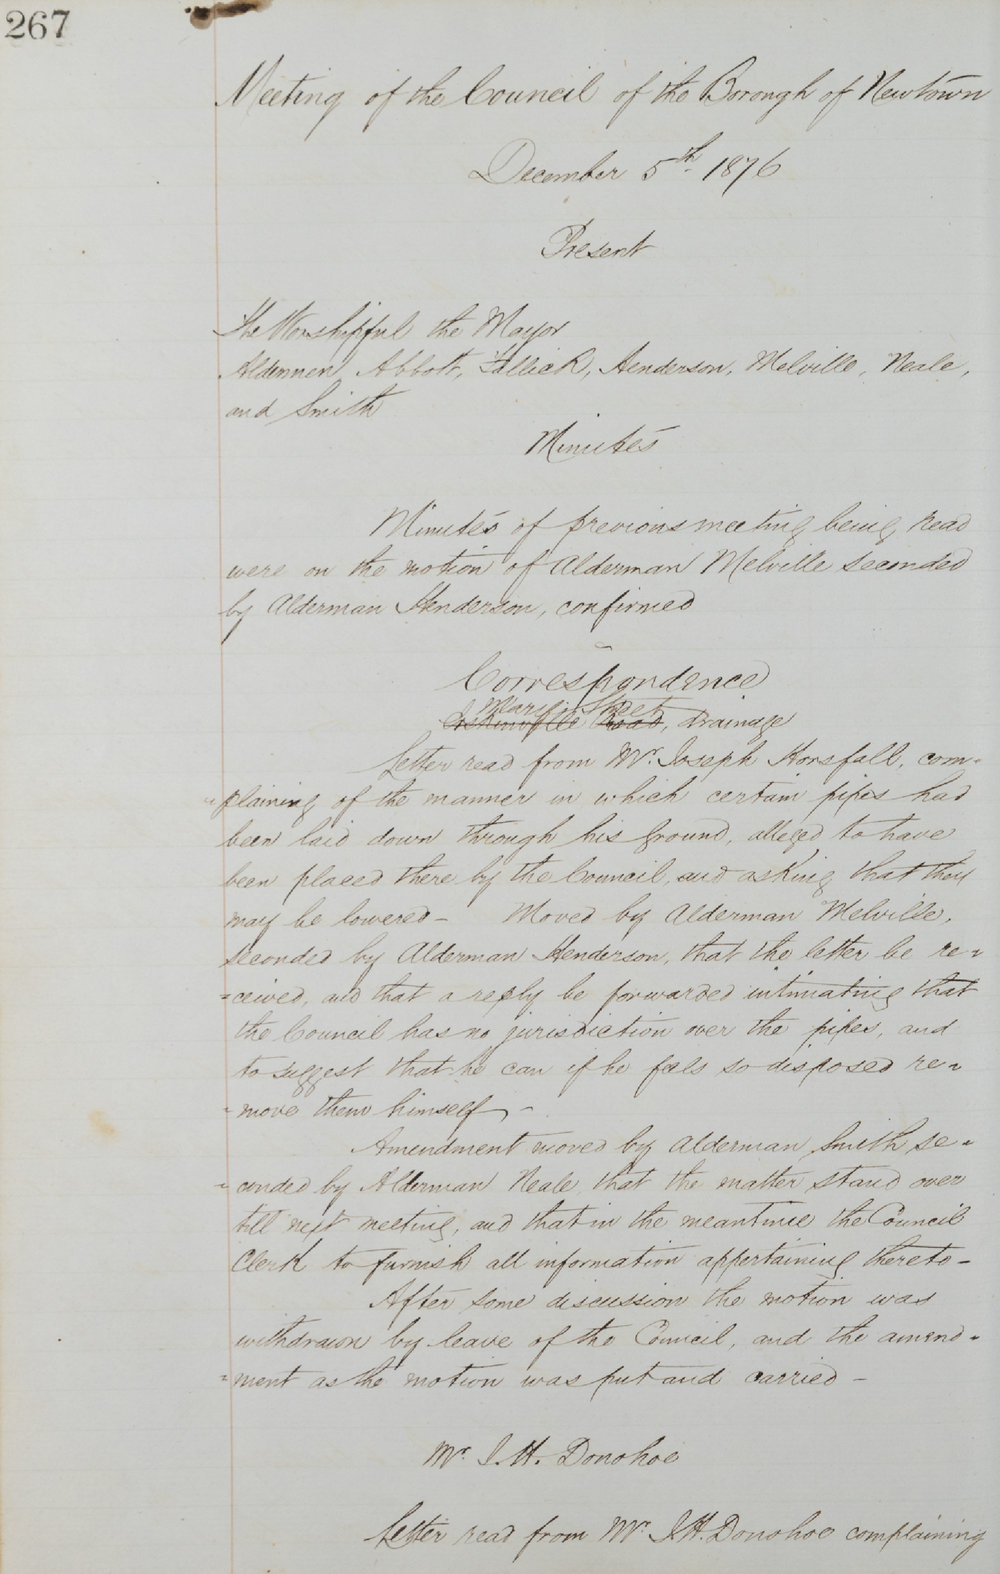 267
Meeting of the Council of the Borough of Newtown
December 5th 1876
Present
The Worshipful the Mayor
Aldermen Abbott, Fallick, Henderson, Melville, Neale,
and Smith
Minutes
Minutes of previous meeting being read
were on the motion of Alderman Melville seconded
by Alderman Henderson, confirmed
Correspondence
Mary Street
Erskinville Road, Drainage
Letter read from Mr. Joseph Horsfall, com-
plaining of the manner in which certain pipes had
been laid down through his ground, alleged to have
been placed there by the Council, and asking that they
may be lowered - Moved by Alderman Melville,
seconded by Alderman Henderson, that the letter be re=
=ceived, and that a reply be forwarded intimating that
the Council has no jurisdiction over the pipes, and
to suggest that he can if he feels so disposed re=
=move them himself -
Amendment moved by Alderman Smith se=
=conded by Alderman Neale that the matter stand over
till next meeting, and that in the meantime the Council
Clerk to furnish all information appertaining thereto -
After some discussion the motion was
withdrawn by leave of the Council, and the amend=
=ment as the motion was put and carried -
Mr. J. H. Donohoe
Letter read from Mr. J. H. Donohoe complaining